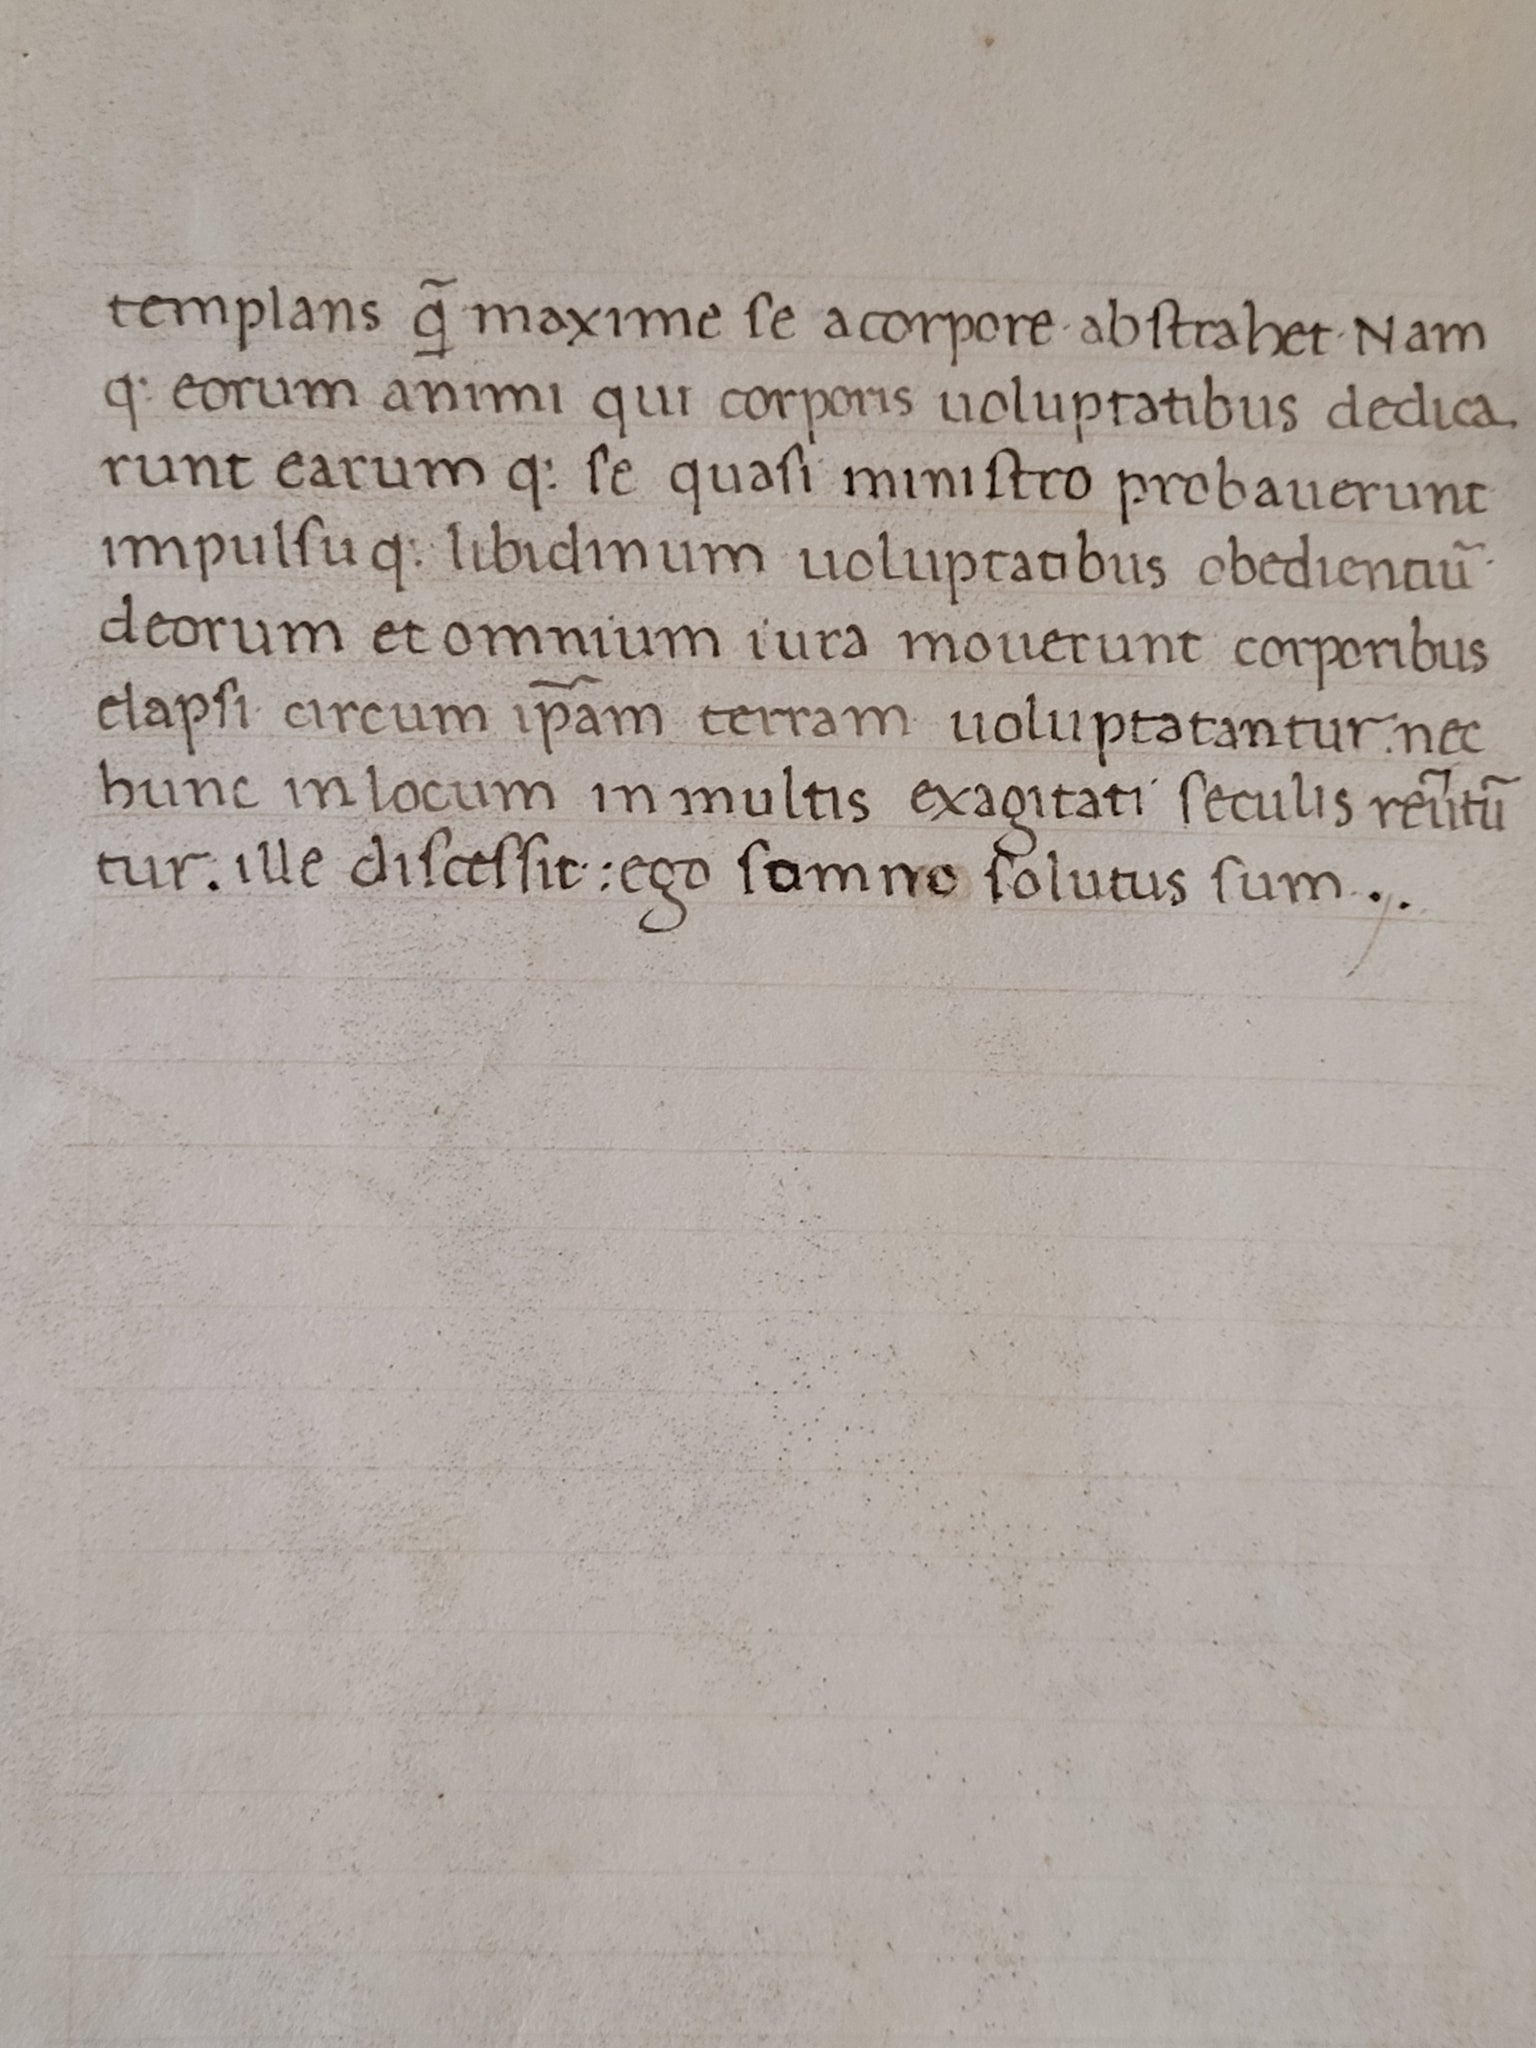 templans q̃ maxime se a corpore abstrahet Nam
q: eorum animi qui corporis uoluptatibus dedica
runt earum q: se quasi ministro probauerunt
impulsu q: libidinum uoluptatibus obedientiũ
deorum et omnium iura mouerunt corporibus
elapsi circum ip̃am terram uoluptatantur. nec
hunc in locum in multis exagitati seculis reũtũ
tur. ille discessit: ego somno solutus sum ..